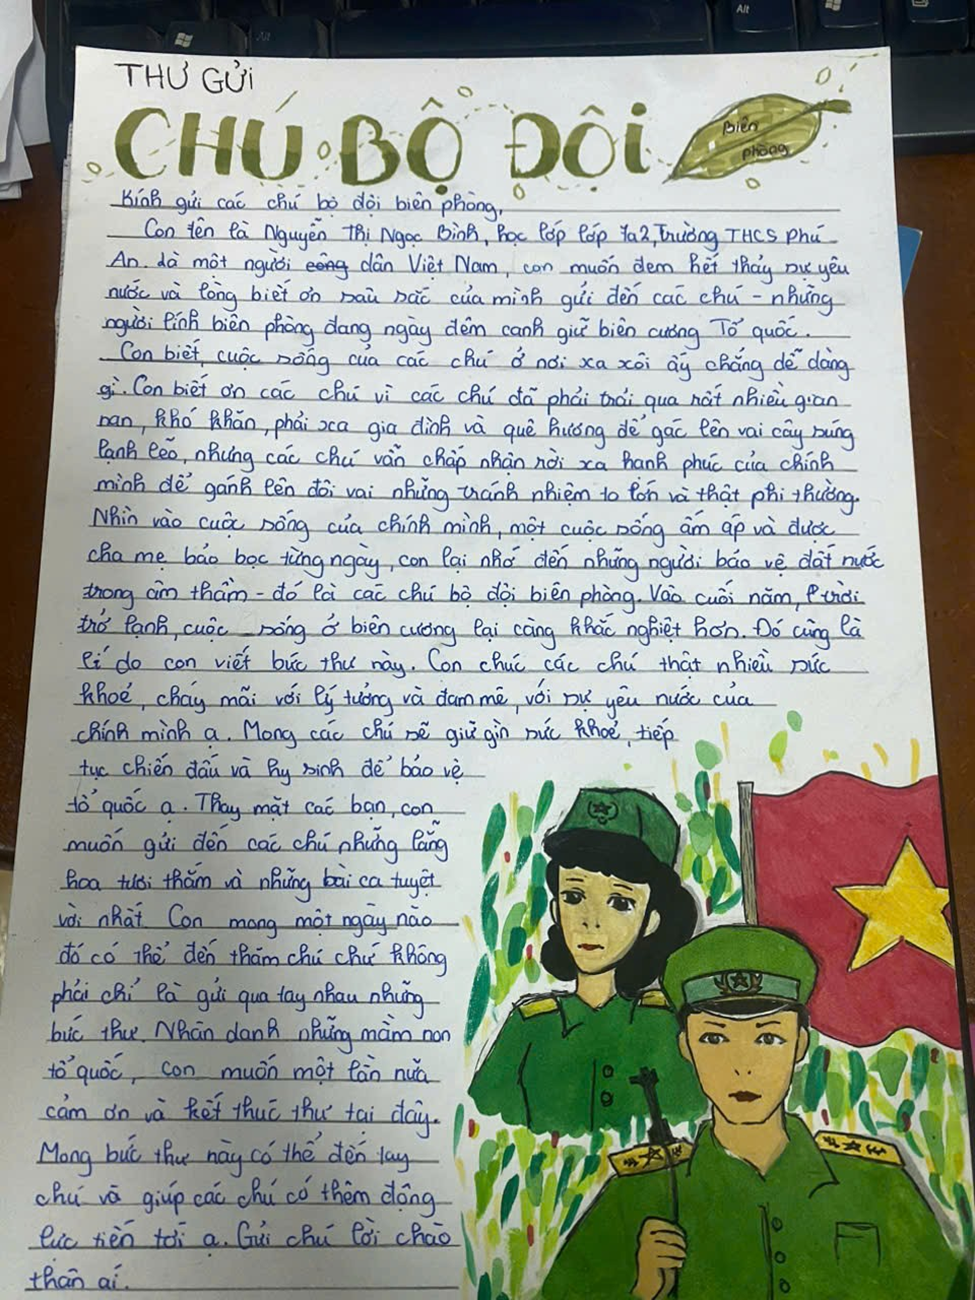 THƯ GỬI
CHÚ BỘ ĐỘI
Biên
phòng
Kính gửi các chú bộ đội biên phòng,
Con tên là Nguyễn Thị Ngọc Bình, học lớp lớp 7a2, Trường THCS Phú
An. Là một người công dân Việt Nam, con muốn đem hết thảy sự yêu
nước và lòng biết ơn sâu sắc của mình gửi đến các chú - những
người lính biên phòng đang ngày đêm canh giữ biên cương Tổ quốc.
Con biết, cuộc sống của các chú ở nơi xa xôi ấy chẳng dễ dàng
gì. Con biết ơn các chú vì các chú đã phải trải qua rất nhiều gian
nan, khó khăn, phải xa gia đình và quê hương để gác lên vai cây súng
lạnh lẽo, nhưng các chú vẫn chấp nhận rời xa hạnh phúc của chính
mình để gánh lên đôi vai những tránh nhiệm to lớn và thật phi thường.
Nhìn vào cuộc sống của chính mình, một cuộc sống ấm áp và được
cha mẹ bảo bọc từng ngày, con lại nhớ đến những người bảo vệ đất nước
trong âm thầm - đó là các chú bộ đội biên phòng. Vào cuối năm, trời
trở lạnh, cuộc sống ở biên cương lại càng khắc nghiệt hơn. Đó cũng là
lí do con viết bức thư này. Con chúc các chú thật nhiều sức
khoẻ, cháy mãi với lý tưởng và đam mê, với sự yêu nước của
chính mình ạ. Mong các chú sẽ giữ gìn sức khoẻ, tiếp
tục chiến đấu và hy sinh để bảo vệ
tổ quốc ạ. Thay mặt các bạn, con
muốn gửi đến các chú những lẵng
hoa tươi thắm và những bài ca tuyệt
vời nhất. Con mong một ngày nào
đó có thể đến thăm chú chứ không
phải chỉ là gửi qua tay nhau những
bức thư. Nhân danh những mầm non
tổ quốc, con muốn một lần nữa
cảm ơn và kết thúc thư tại đây.
Mong bức thư này có thể đến tay
chú và giúp các chú có thêm động
lực tiến tới ạ. Gửi chú lời chào
thân ái.